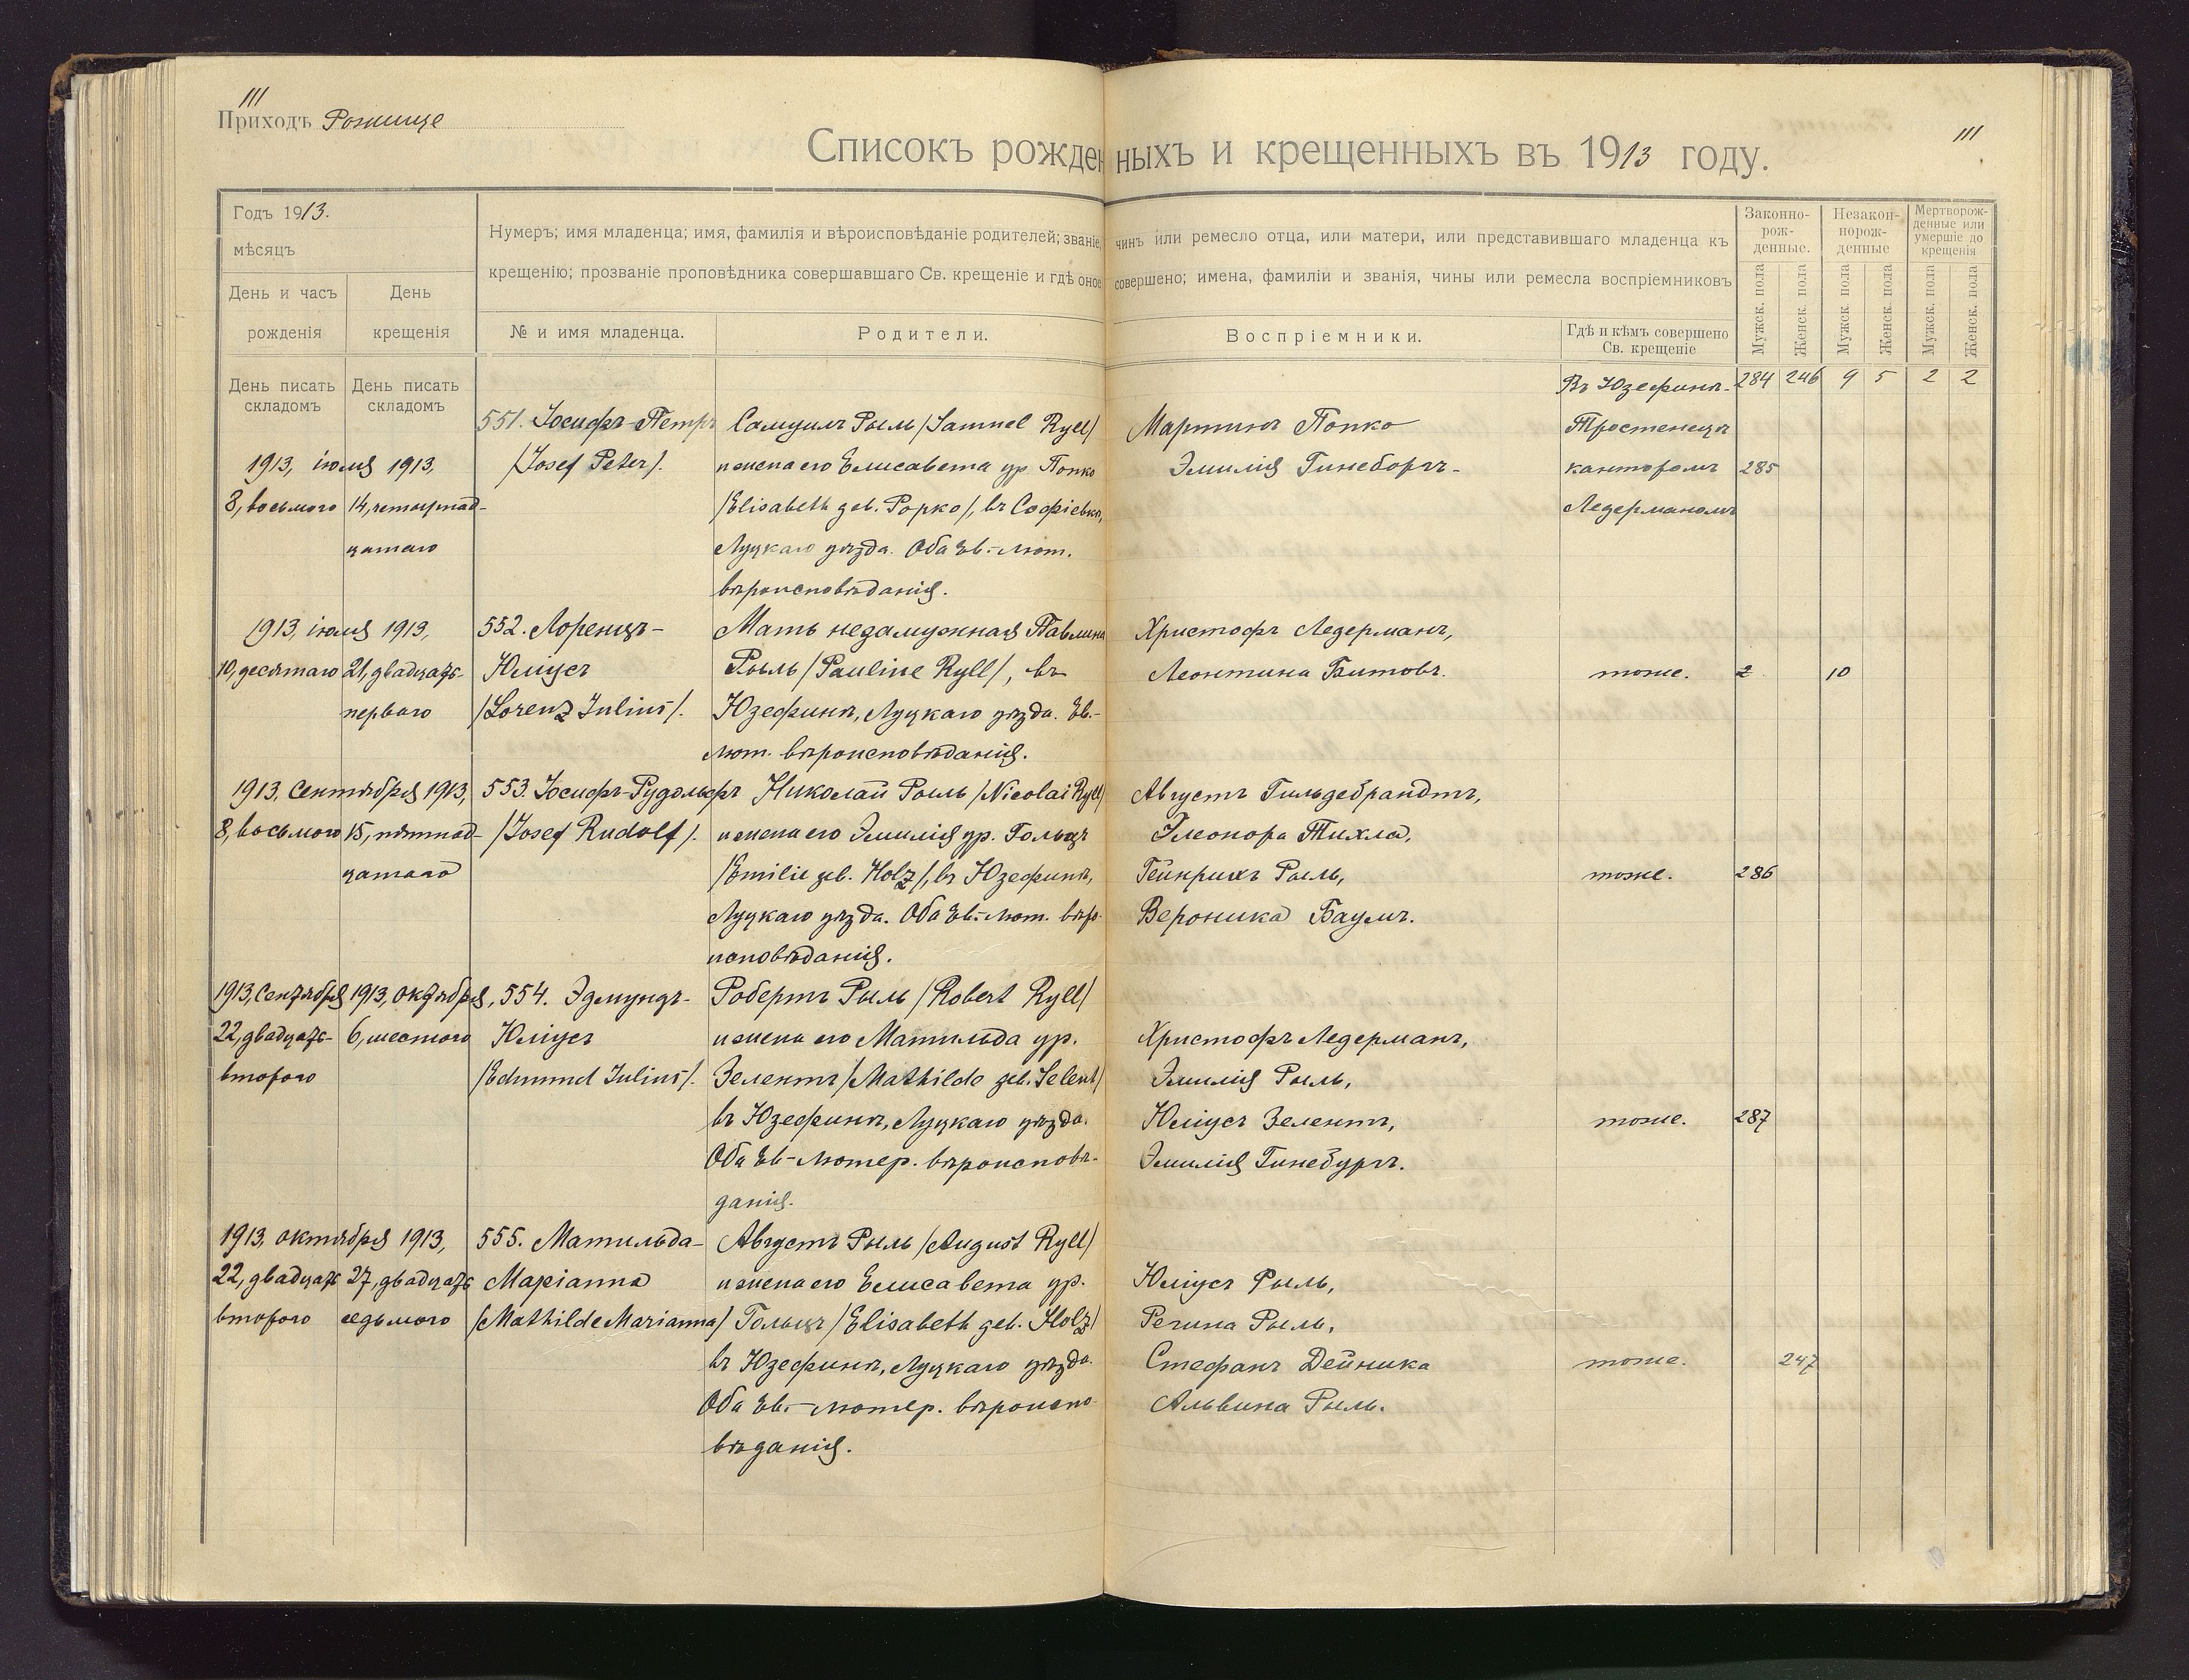 111
Приходъ Рожище
111
Списокъ рожденныхъ и крещенныхъ въ 1913 году.
Годъ 1913.
мѣсяцъ
День и часъ рожденія
День крещенія
Нумеръ; имя младенца; имя, фамилія и вѣроисповѣданіе родителей; званіе, чинъ или ремесло отца, или матери, или представившаго младенца къ
крещенію; прозваніе проповѣдника совершавшаго Св. крещеніе и гдѣ оное совершено; имена, фамиліи и званія, чины или ремесла воспріемниковъ
№ и имя младенца.
Родители.
Воспріемники.
Гдѣ и кѣмъ совершено
Св. крещеніе
Законно-
рож-
денные.
Незакон-
норож-
денные
Мертворож-
денные или
умершіе до
крещенія
Мужск. пола
Женск. пола
Мужск. пола
Женск. пола
Мужск. пола
Женск. пола
День писать
складомъ
День писать
складомъ
Въ Юзефинѣ-
284 246 9 5 2 2
1913, іюля 1913,
8, восьмого
14, четырнад-
цатаго
551. Іосифъ-Петръ
/Josef Peter/.
Самуилъ Рыль /Samuel Ryll/
и жена его Елисавета ур. Попко
/Elisabeth geb. Popko/, въ Софіевкѣ,
Луцкаго уѣзда. Оба Ев.-лют.
вѣроисповѣданія.
Мартинъ Попко
Эмилія Гинеборгъ-
Тростенецъ
канторомъ
Ледерманомъ
285
1913, іюля 1913,
10, десятаго
21, двадцать-
перваго
552. Лоренцъ-
Юліусъ
/Lorenz Julius/.
Мать незамужная Павлина
Рыль /Pauline Ryll/, въ
Юзефинѣ, Луцкаго уѣзда. Ев.-
лют. вѣроисповѣданія.
Христофъ Ледерманъ,
Леонтина Битовъ.
тоже.
2
10
1913, Сентября 1913,
8, восьмого
15, пятнад-
цатаго
553. Іосифъ-Рудольфъ
/Josef Rudolf/.
Николай Рыль /Nicolai Ryll/
и жена его Эмилія ур. Гольцъ
/Emilie geb. Holz/, въ Юзефинѣ,
Луцкаго уѣзда. Оба Ев.-лют. вѣро-
исповѣданія.
Августъ Гильдебрандтъ,
Элеонора Тихла,
Гейнрихъ Рыль,
Вероника Баумъ.
тоже.
286
1913, Сентября
22, двадцать-
второго
1913, Октября,
6, шестого
554. Эдмундъ-
Юліусъ
/Edmund Julius/.
Робертъ Рыль /Robert Ryll/
и жена его Матильда ур.
Зелентъ /Mathilde geb. Selent/
въ Юзефинѣ, Луцкаго уѣзда.
Оба Ев-лютер. вѣроисповѣ-
данія.
Христофъ Ледерманъ,
Эмилія Рыль,
Юліусъ Зелентъ,
Эмилія Гинебургъ.
тоже.
287
1913, октября 1913,
22, двадцать
второго
27, двадцать
седьмого
555. Матильда-
Маріанна
/Mathilde Marianna/
Августъ Рыль /August Ryll/
и жена его Елисавета ур.
Гольцъ /Elisabeth geb. Holz/
въ Юзефинѣ, Луцкаго уѣзда.
Оба Ев.-лютер. вѣроиспо-
вѣданія.
Юліусъ Рыль,
Регина Рыль,
Стефанъ Дейника
Альвина Рыль.
тоже.
247